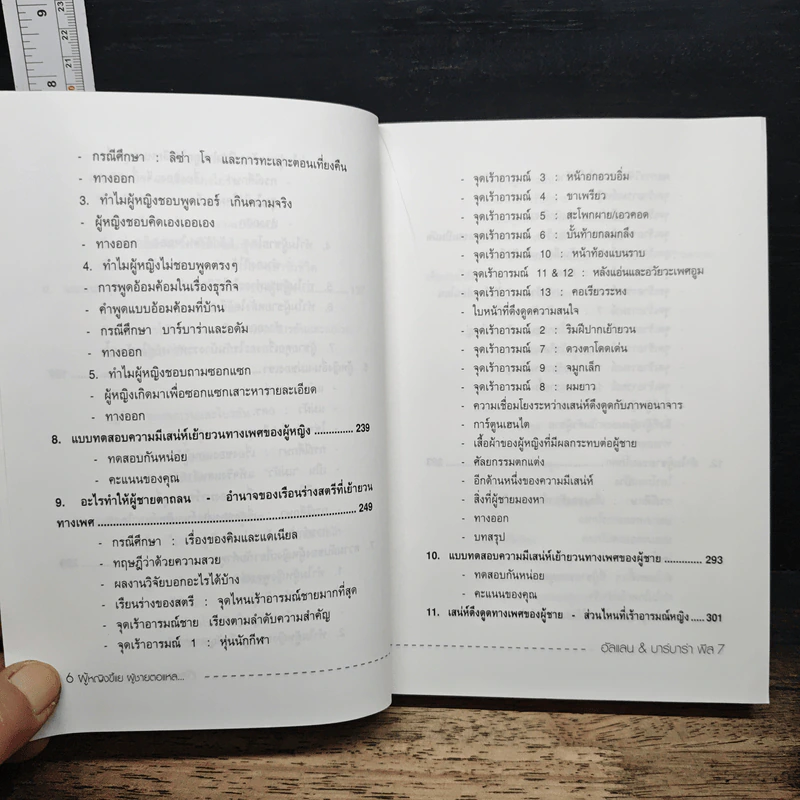 9
8
23
22
21
- กรณีศึกษา : ลิซ่า โจ และการทะเลาะตอนเที่ยงคืน
- ทางออก
3. ทำไมผู้หญิงชอบพูดเวอร์ เกินความจริง
- ผู้หญิงชอบคิดเองเออเอง
- ทางออก
4. ทำไมผู้หญิงไม่ชอบพูดตรงๆ
- การพูดอ้อมค้อมในเรื่องธุรกิจ
- คำพูดแบบอ้อมค้อมที่บ้าน
- กรณีศึกษา บาร์บาร่าและอดัม
- ทางออก
5. ทำไมผู้หญิงชอบถามซอกแซก
- ผู้หญิงเกิดมาเพื่อซอกแซกเสาะหารายละเอียด
- ทางออก
8. แบบทดสอบความมีเสน่ห์เย้ายวนทางเพศของผู้หญิง ............. 239
- ทดสอบกันหน่อย
- คะแนนของคุณ
9. อะไรทำให้ผู้ชายตาถลน - อำนาจของเรือนร่างสตรีที่เย้ายวน
ทางเพศ ........................................................................ 249
- กรณีศึกษา : เรื่องของคิมและแดเนียล
- ทฤษฎีว่าด้วยความสวย
- ผลงานวิจัยบอกอะไรได้บ้าง
- เรียนร่างของสตรี : จุดไหนเร้าอารมณ์ชายมากที่สุด
- จุดเร้าอารมณ์ชาย เรียงตามลำดับความสำคัญ
- จุดเร้าอารมณ์ 1 : หุ่นนักกีฬา
6 ผู้หญิงขี้แย ผู้ชายตอแหล...
- จุดเร้าอารมณ์ 3 : หน้าอกอวบอิ่ม
- จุดเร้าอารมณ์ 4 : ขาเพรียว
- จุดเร้าอารมณ์ 5 : สะโพกผาย/เอวคอด
- จุดเร้าอารมณ์ 6 : บั้นท้ายกลมกลึง
- จุดเร้าอารมณ์ 10 : หน้าท้องแบนราบ
- จุดเร้าอารมณ์ 11 & 12 : หลังแอ่นและอวัยวะเพศอูม
- จุดเร้าอารมณ์ 13 : คอเรียวระหง
- ใบหน้าที่ดึงดูดความสนใจ
- จุดเร้าอารมณ์ 2 : ริมฝีปากเย้ายวน
- จุดเร้าอารมณ์ 7 : ดวงตาโดดเด่น
- จุดเร้าอารมณ์ 9 : จมูกเล็ก
- จุดเร้าอารมณ์ 8 : ผมยาว
- ความเชื่อมโยงระหว่างเสน่ห์ดึงดูดกับภาพอนาจาร
- การ์ตูนเฮนไต
- เสื้อผ้าของผู้หญิงที่มีผลกระทบต่อผู้ชาย
- ศัลยกรรมตกแต่ง
- อีกด้านหนึ่งของความมีเสน่ห์
- สิ่งที่ผู้ชายมองหา
- ทางออก
- บทสรุป
10. แบบทดสอบความมีเสน่ห์เย้ายวนทางเพศของผู้ชาย ............. 293
- ทดสอบกันหน่อย
- คะแนนของคุณ
11. เสน่ห์ดึงดูดทางเพศของผู้ชาย - ส่วนไหนที่เร้าอารมณ์หญิง ..... 301
อัลแลน & บาร์บาร่า พีส 7